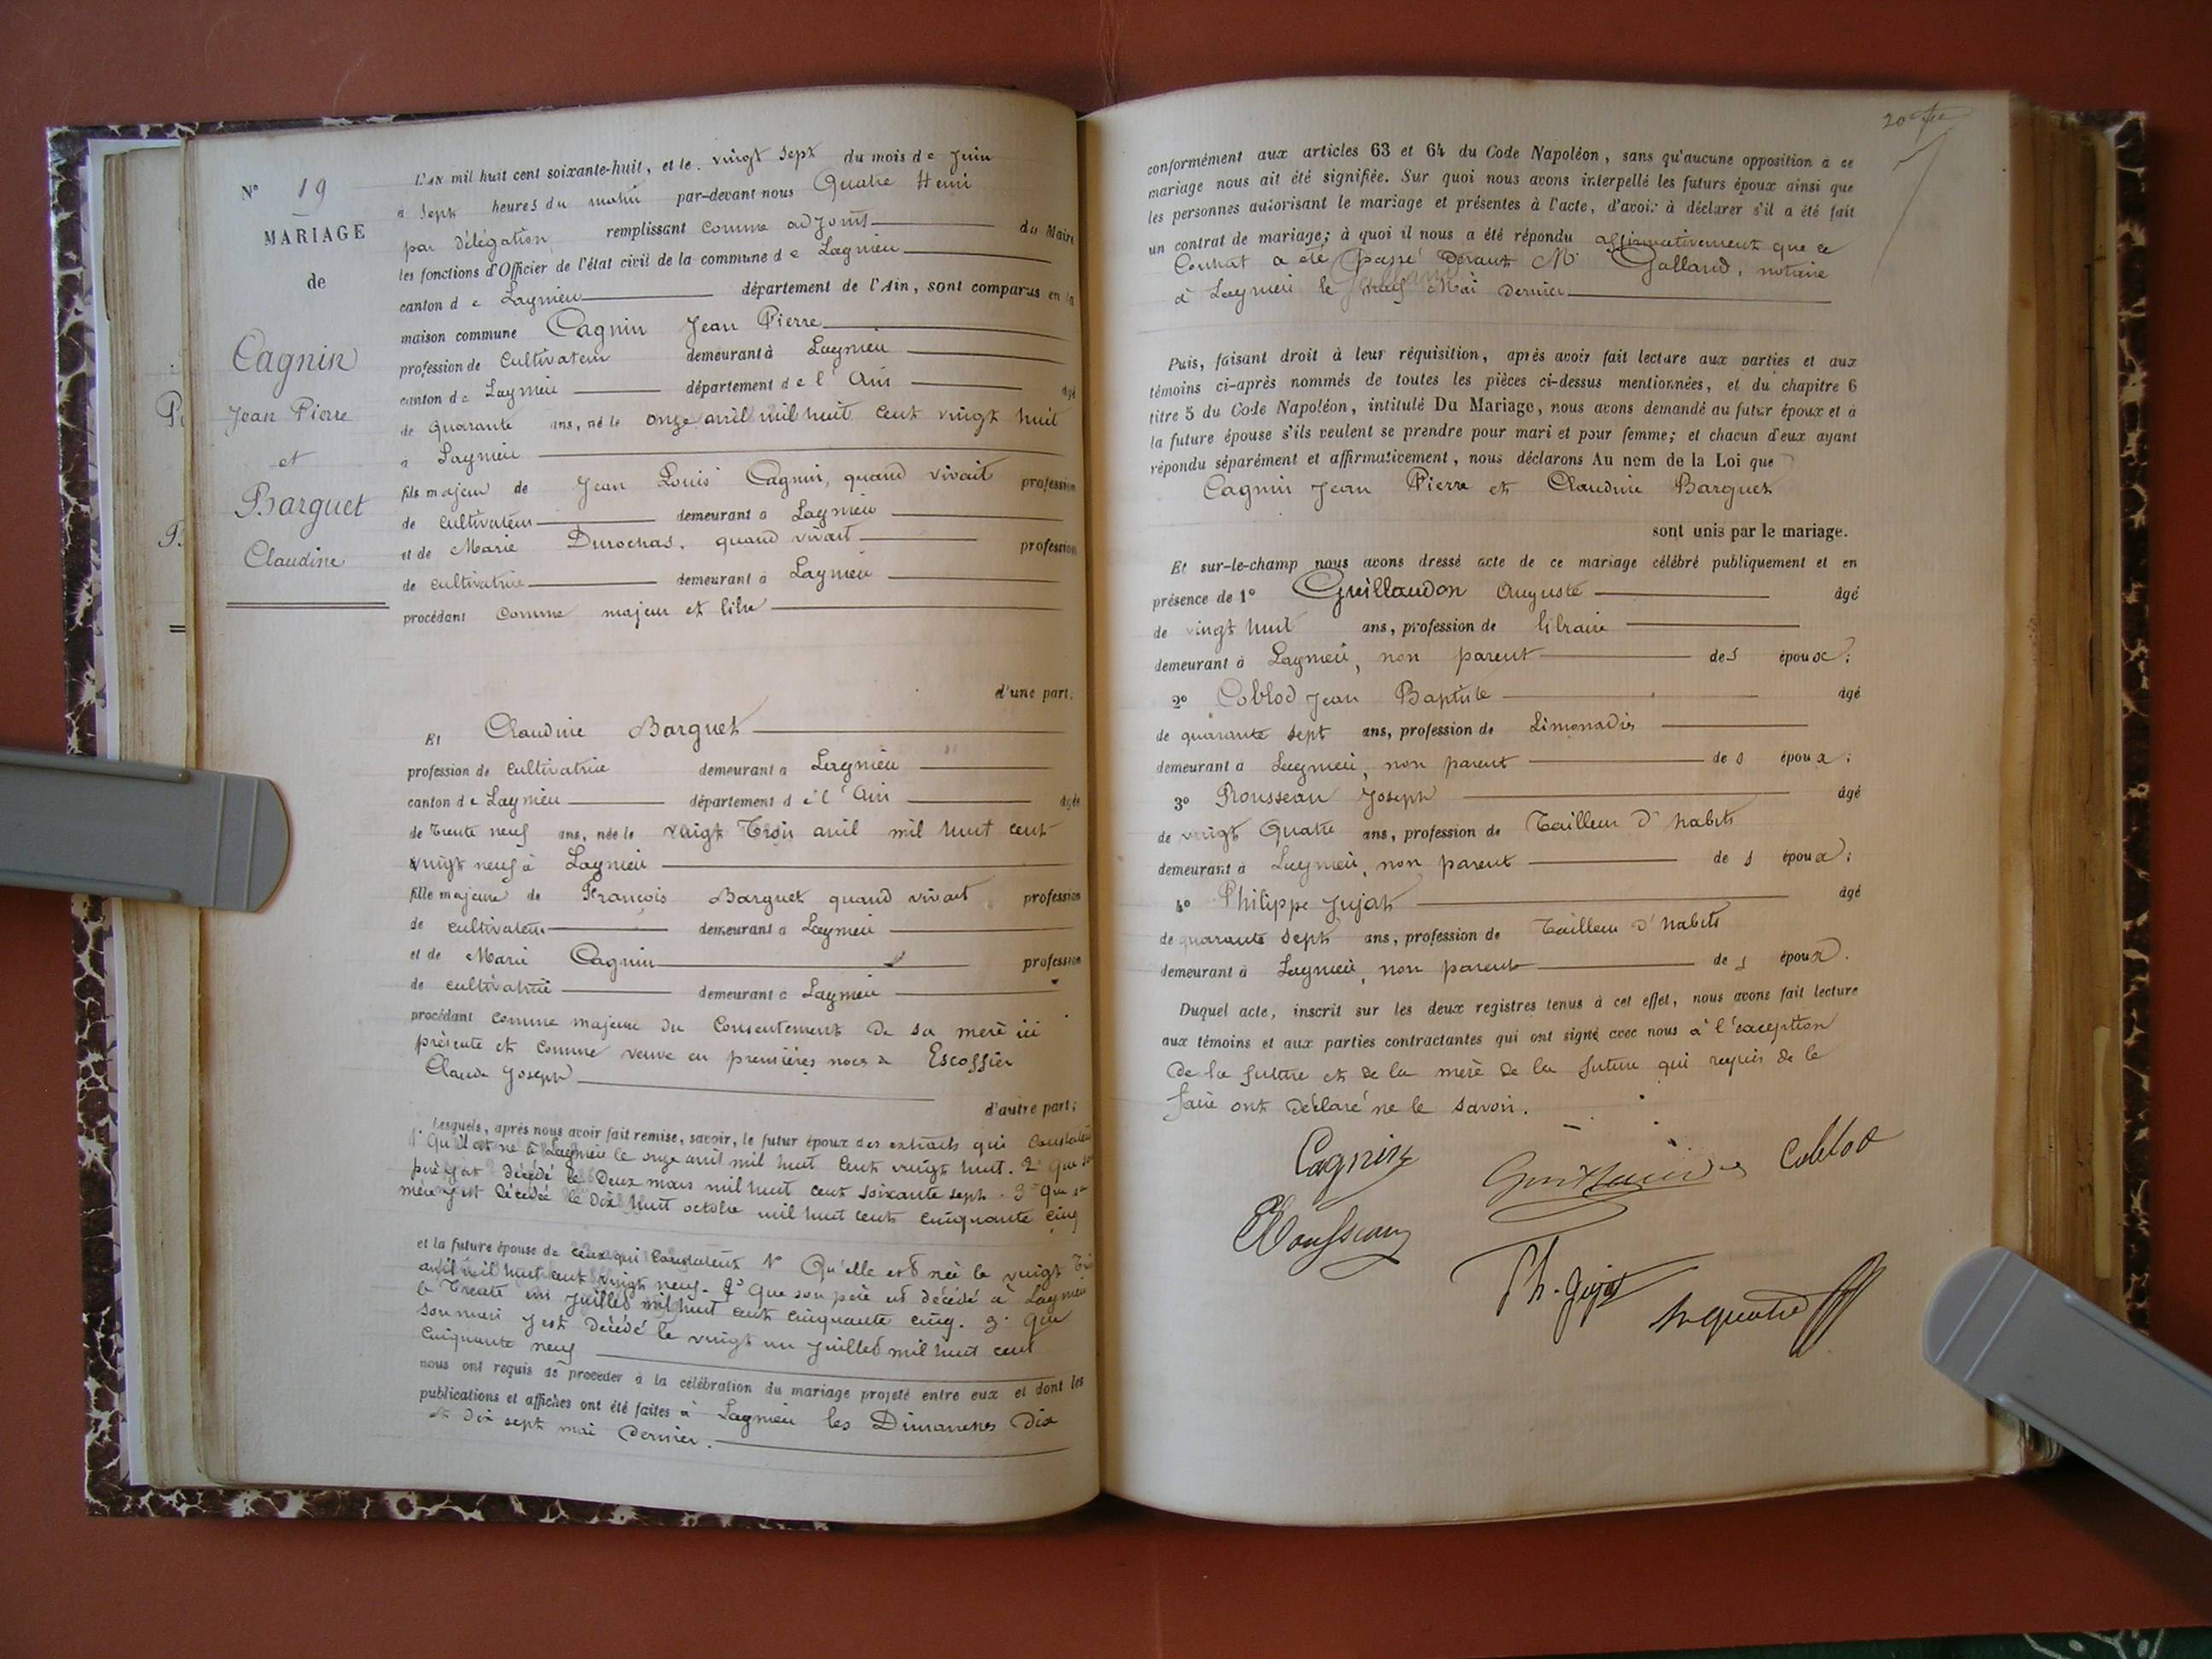 N° 19
MARIAGE
de
Cagnin
Jean Pierre
et
Barguet
Claudine
L'AN mil huit cent soixante-huit, et le vingt sept du mois de Juin
a sept heures du matin par-devant nous Quatre Henri
par délégation remplissant comme adjoint du Maire
les fonctions d'Officier de l'état civil de la commune de Lagnieu
canton de Lagnieu département de l'Ain, sont comparus en la
maison commune Cagnin Jean Pierre
profession de cultivateur demeurant à Lagnieu
canton de Lagnieu département de l'Ain âgé
de quarante ans, né le onze avril mil huit cent vingt huit
à Lagnieu
fils majeur de Jean Louis Cagnin, quand vivait profession
de cultivateur demeurant à Lagnieu
et de Marie Durochas, quand vivait profession
de cultivatrice demeurant à Lagnieu
procédant comme majeur et libre
d'une part;
Et Claudine Barguet
profession de cultivatrice demeurant à Lagnieu
canton de Lagnieu département de l'Ain âgée
de trente neuf ans, née le vingt trois avril mil huit cent
vingt neuf à Lagnieu
fille majeure de François Barguet quand vivait profession
de cultivateur demeurant à Lagnieu
et de Marie Cagnin profession
de cultivatrice demeurant à Lagnieu
procédant comme majeure du consentement de sa mère ici
présente et comme veuve en premières noces de Escoffier
Claude Joseph
d'autre part;
Lesquels, après nous avoir fait remise, savoir, le futur époux des extraits qui constatent
1° Qu'il est né à Lagnieu le onze avril mil huit cent vingt huit. 2° Que son
père y est décédé le deux mars mil huit cent soixante sept. 3° Que sa
mère y est décédée le dix huit octobre mil huit cent cinquante cinq
et la future épouse de ceux qui constatent 1° Qu'elle est née le vingt trois
avril mil huit cent vingt neuf. 2° Que son père est décédé à Lagnieu
le trente un juillet mil huit cent cinquante cinq. 3° Que
son mari y est décédé le vingt un juillet mil huit cent
cinquante neuf
nous ont requis de procéder à la célébration du mariage projeté entre eux et dont les
publications et affiches ont été faites à Lagnieu les Dimanches dix
et dix sept mai dernier.
conformément aux articles 63 et 64 du Code Napoléon, sans qu'aucune opposition à ce
mariage nous ait été signifiée. Sur quoi nous avons interpellé les futurs époux ainsi que
les personnes autorisant le mariage et présentes à l'acte, d'avoir à déclarer s'il a été fait
un contrat de mariage; à quoi il nous a été répondu affirmativement que ce
Contrat a été passé devant M. Galland, notaire
à Lagnieu le neuf Mai dernier
Puis, faisant droit à leur réquisition, après avoir fait lecture aux parties et aux
témoins ci-après nommés de toutes les pièces ci-dessus mentionnées, et du chapitre 6
titre 5 du Code Napoléon, intitulé Du Mariage, nous avons demandé au futur époux et à
la future épouse s'ils veulent se prendre pour mari et pour femme; et chacun d'eux ayant
répondu séparément et affirmativement, nous déclarons Au nom de la Loi que
Cagnin Jean Pierre et Claudine Barguet
sont unis par le mariage.
Et sur-le-champ nous avons dressé acte de ce mariage célébré publiquement et en
présence de 1° Guillaudon Auguste âgé
de vingt huit ans, profession de libraire
demeurant à Lagnieu, non parent des époux;
2° Coblod Jean Baptiste âgé
de quarante sept ans, profession de Limonadier
demeurant à Lagnieu, non parent des époux;
3° Rousseau Joseph âgé
de vingt quatre ans, profession de Tailleur d'habits
demeurant à Lagnieu, non parent des époux;
4° Philippe Jujat âgé
de quarante sept ans, profession de Tailleur d'habits
demeurant à Lagnieu, non parent des époux.
Duquel acte, inscrit sur les deux registres tenus à cet effet, nous avons fait lecture
aux témoins et aux parties contractantes qui ont signé avec nous à l'exception
de la future et de la mère de la future qui requis de le
faire ont déclaré ne le savoir.
Cagnin Coblod
Rousseau
Ph. Jujat hr quatre